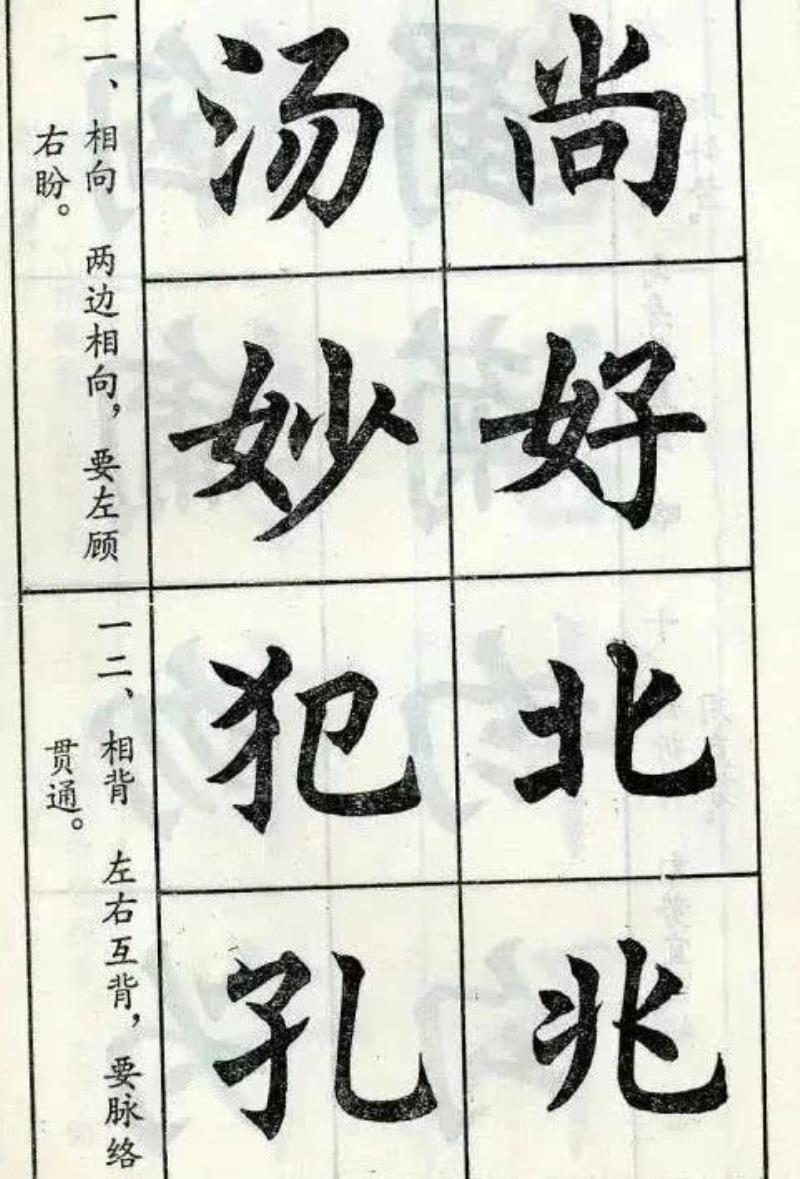 尚好
汤妙
一一、相向 两边相向，要左顾
右盼。
北兆
犯孔
一二、相背 左右互背，要脉络
贯通。